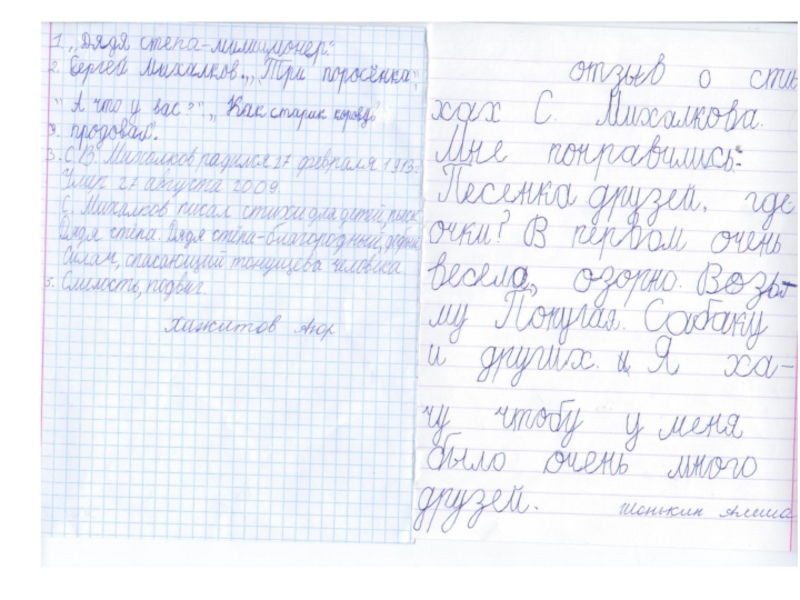 1. „Дядя степа-милиционер."
2. Сергей Михалков.„Три поросёнка",
"А что у вас?",„Как старик корову
продовал".
3. С.В. Михалков радился 27 февраля 1913г
Умер 27 августа 2009.
С. Михалков писал стихи для детей,
Дядя стёпа. Дядя стёпа-благородный,
силач, спасающий человека
5. Смлость, подвиг.
отзыв о сти
хах С. Михалкова.
Мне понравились:
Песенка друзей, где
очки? В первом очень
весела, озорно. Возь
му Попугая. Сабаку
и других. и Я ха-
чу чтобу у меня
было очень много
друзей.